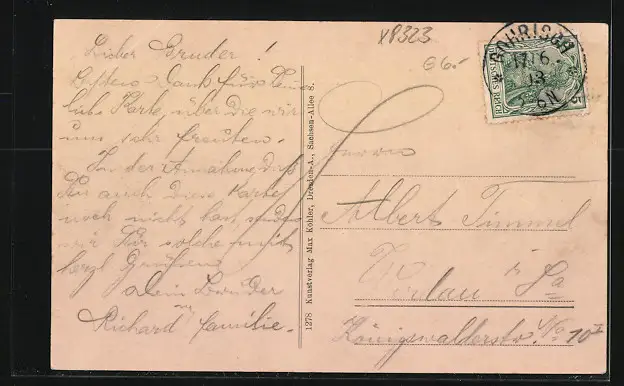 Lieber Bruder!
Besten Dank für Deine
liebe Karte, über die wir
uns sehr freuten.
In der Annahme, daß
Du auch diese Karte
noch nicht hast, senden
wir Dir solche mit
herzl Grüßen
Dein Bruder
Richard u. Familie.
1278 Kunstverlag Max Köhler, Dresden-A., Sachsen-Allee 8.
x8323
GOHRISCH
17/6
13
DEUTSCHES REICH
5
Herrn
Albert Timmel
i/Sa
Königswalderstr.